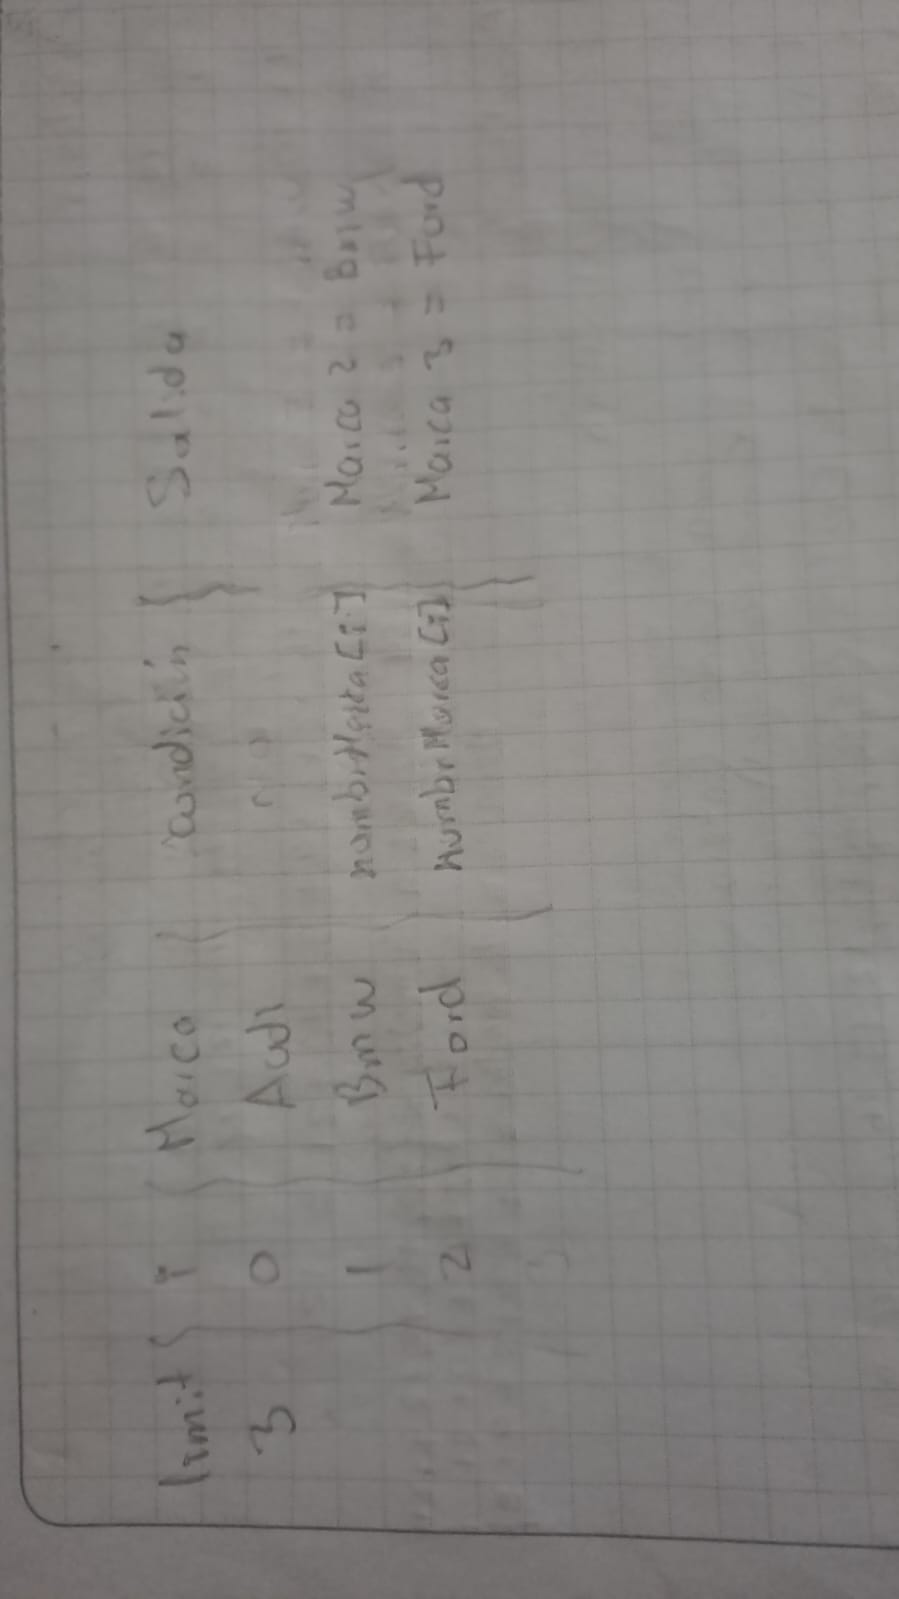 limit i Marca condición Salida
3 0 Audi no
1 Bmw nombrMarca[i] Marca 2 = Bmw
2 Ford nombrMarca[i] Marca 3 = Ford